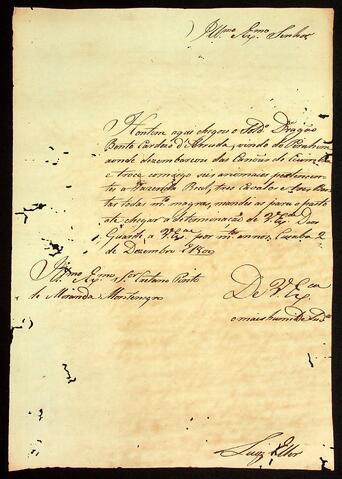 Illmo. Exmo. Senhor
Hontem aqui chegou o Soldo. Dragão
Bento Cardozo d'Almeida, vindo de
aonde dezembarcou das Canoas de
e trouce comsigo seis animaes pertencen-
tes a Fazenda Real, tres Cavalos e tres Bes-
tas todas mto. magras, mandei as para o pasto
até chegar a determinação de V. Exa. Deos
Guarde a V. Exa. por mtos. annos, Cuiabá 2
de Dezembro
Illmo. Exmo. Sr. Caetano Pinto
de Miranda Montenegro
De V. Exa.
o mais humilde
Luiz